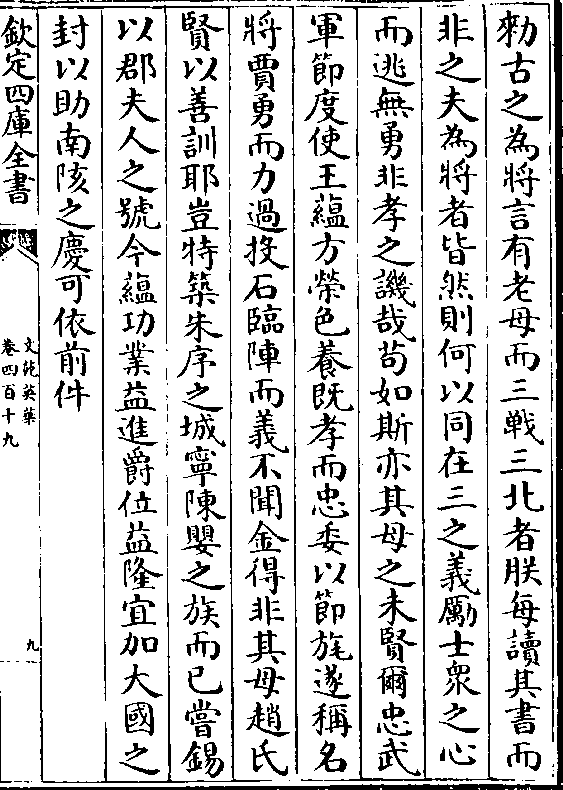 勑古之為將言有老母而三戰三北者朕每讀其書而
非之夫為將者皆然則何以同在三之義勵士衆之心
而逃無勇非孝之譏哉苟如斯亦其母之未賢爾忠武
軍節度使王藴方榮色養既孝而忠委以節旄遂稱名
將賈勇而力過投石臨陣而義不聞金得非其母趙氏
賢以善訓耶豈特築朱序之城寧陳嬰之族而已嘗錫
以郡夫人之號今藴功業益進爵位益隆宜加大國之
封以助南陔之慶可依前件
欽定四庫全書
文苑英華
卷四百十九
九